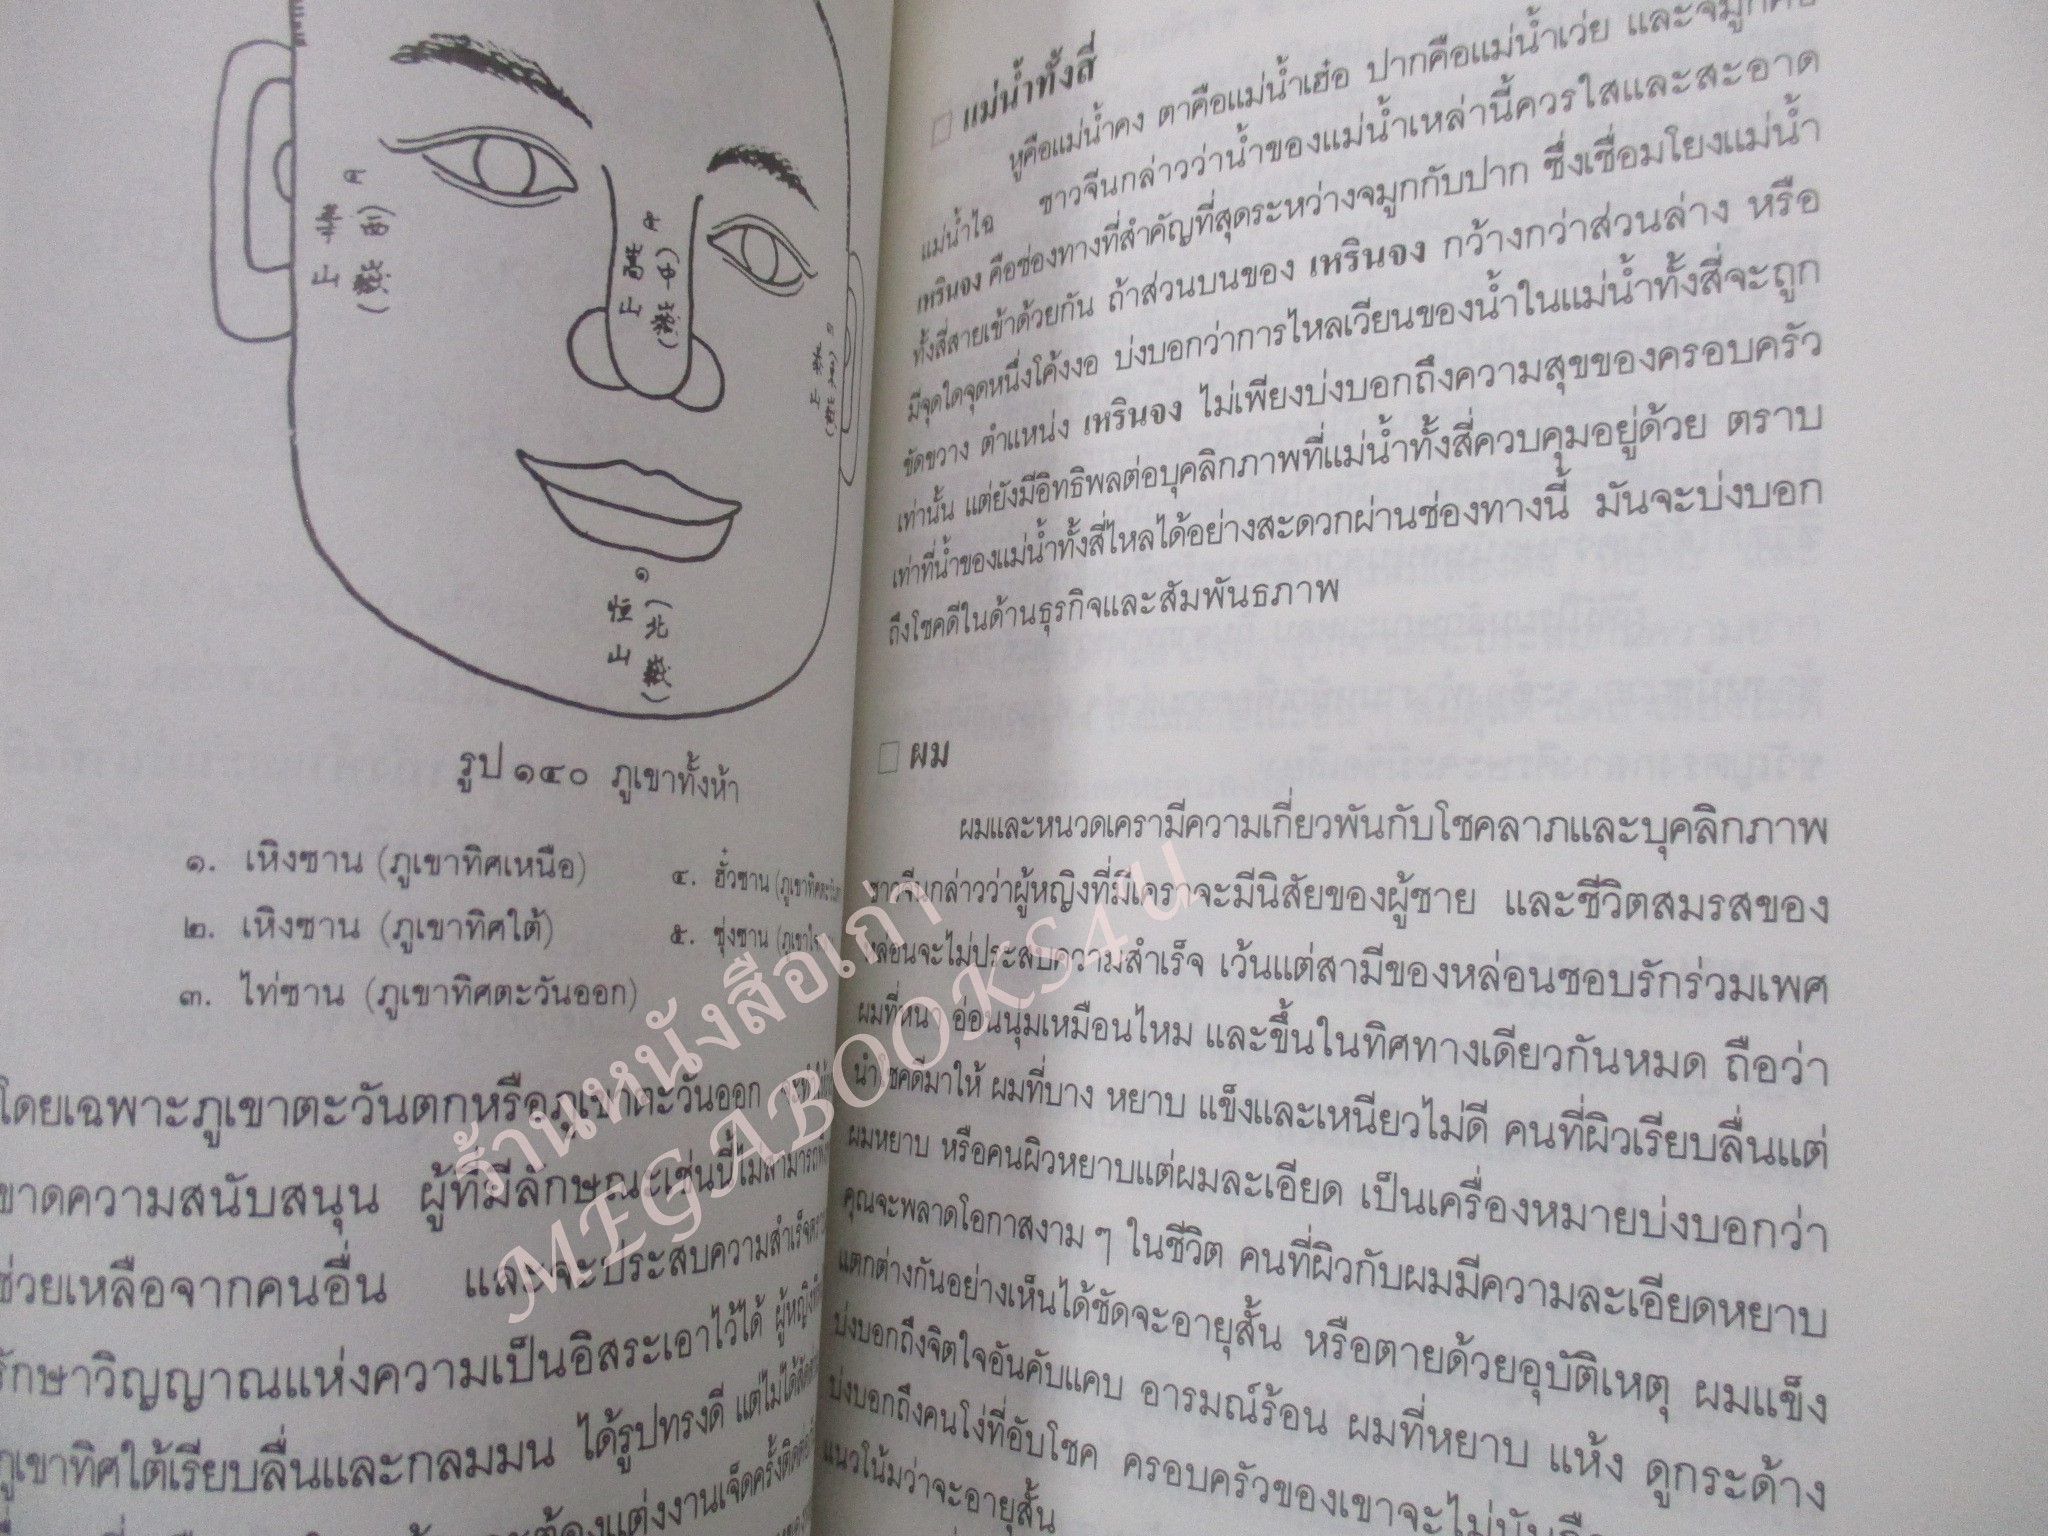 ๔
華 (西
山 嶽)
๕
嵩 (中
山 嶽)
๑
恒 (北
山 嶽)
รูป ๑๔๐ ภูเขาทั้งห้า
๑. เหิงซาน (ภูเขาทิศเหนือ)
๒. เหิงซาน (ภูเขาทิศใต้)
๓. ไท่ซาน (ภูเขาทิศตะวันออก)
๔. ฮั๋วซาน (ภูเขาทิศตะวัน
๕. ซุ่งซาน (ภูเขา
โดยเฉพาะภูเขาตะวันตกหรือภูเขาตะวันออก
ขาดความสนับสนุน ผู้ที่มีลักษณะเช่นนี้ไม่สามารถ
ช่วยเหลือจากคนอื่น และจะประสบความสำเร็จ
รักษาวิญญาณแห่งความเป็นอิสระเอาไว้ได้ ผู้หญิง
ภูเขาทิศใต้เรียบลื่นและกลมมน ได้รูปทรงดี แต่ไม่ได้
ต้องแต่งงานเจ็ดครั้งติดต่อ
แม่น้ำทั้งสี่
หูคือแม่น้ำคง ตาคือแม่น้ำเฮ๋อ ปากคือแม่น้ำเว่ย และจมูกคือ
แม่น้ำไฉ ชาวจีนกล่าวว่าน้ำของแม่น้ำเหล่านี้ควรใสและสะอาด
เหรินจง คือช่องทางที่สำคัญที่สุดระหว่างจมูกกับปาก ซึ่งเชื่อมโยงแม่น้ำ
ทั้งสี่สายเข้าด้วยกัน ถ้าส่วนบนของ เหรินจง กว้างกว่าส่วนล่าง หรือ
มีจุดใดจุดหนึ่งโค้งงอ บ่งบอกว่าการไหลเวียนของน้ำในแม่น้ำทั้งสี่จะถูก
ขัดขวาง ตำแหน่ง เหรินจง ไม่เพียงบ่งบอกถึงความสุขของครอบครัว
เท่านั้น แต่ยังมีอิทธิพลต่อบุคลิกภาพที่แม่น้ำทั้งสี่ควบคุมอยู่ด้วย ตราบ
เท่าที่น้ำของแม่น้ำทั้งสี่ไหลได้อย่างสะดวกผ่านช่องทางนี้ มันจะบ่งบอก
ถึงโชคดีในด้านธุรกิจและสัมพันธภาพ
ผม
ผมและหนวดเครามีความเกี่ยวพันกับโชคลาภและบุคลิกภาพ
ชาวจีนกล่าวว่าผู้หญิงที่มีเคราจะมีนิสัยของผู้ชาย และชีวิตสมรสของ
หล่อนจะไม่ประสบความสำเร็จ เว้นแต่สามีของหล่อนชอบรักร่วมเพศ
ผมที่หนา อ่อนนุ่มเหมือนไหม และขึ้นในทิศทางเดียวกันหมด ถือว่า
นำโชคดีมาให้ ผมที่บาง หยาบ แข็งและเหนียวไม่ดี คนที่ผิวเรียบลื่นแต่
ผมหยาบ หรือคนผิวหยาบแต่ผมละเอียด เป็นเครื่องหมายบ่งบอกว่า
คุณจะพลาดโอกาสงาม ๆ ในชีวิต คนที่ผิวกับผมมีความละเอียดหยาบ
แตกต่างกันอย่างเห็นได้ชัดจะอายุสั้น หรือตายด้วยอุบัติเหตุ ผมแข็ง
บ่งบอกถึงจิตใจอันคับแคบ อารมณ์ร้อน ผมที่หยาบ แห้ง ดูกระด้าง
บ่งบอกถึงคนโง่ที่อับโชค ครอบครัวของเขาจะไม่
แนวโน้มว่าจะอายุสั้น
ร้านหนังสือเก่า
MEGABOOKS4U